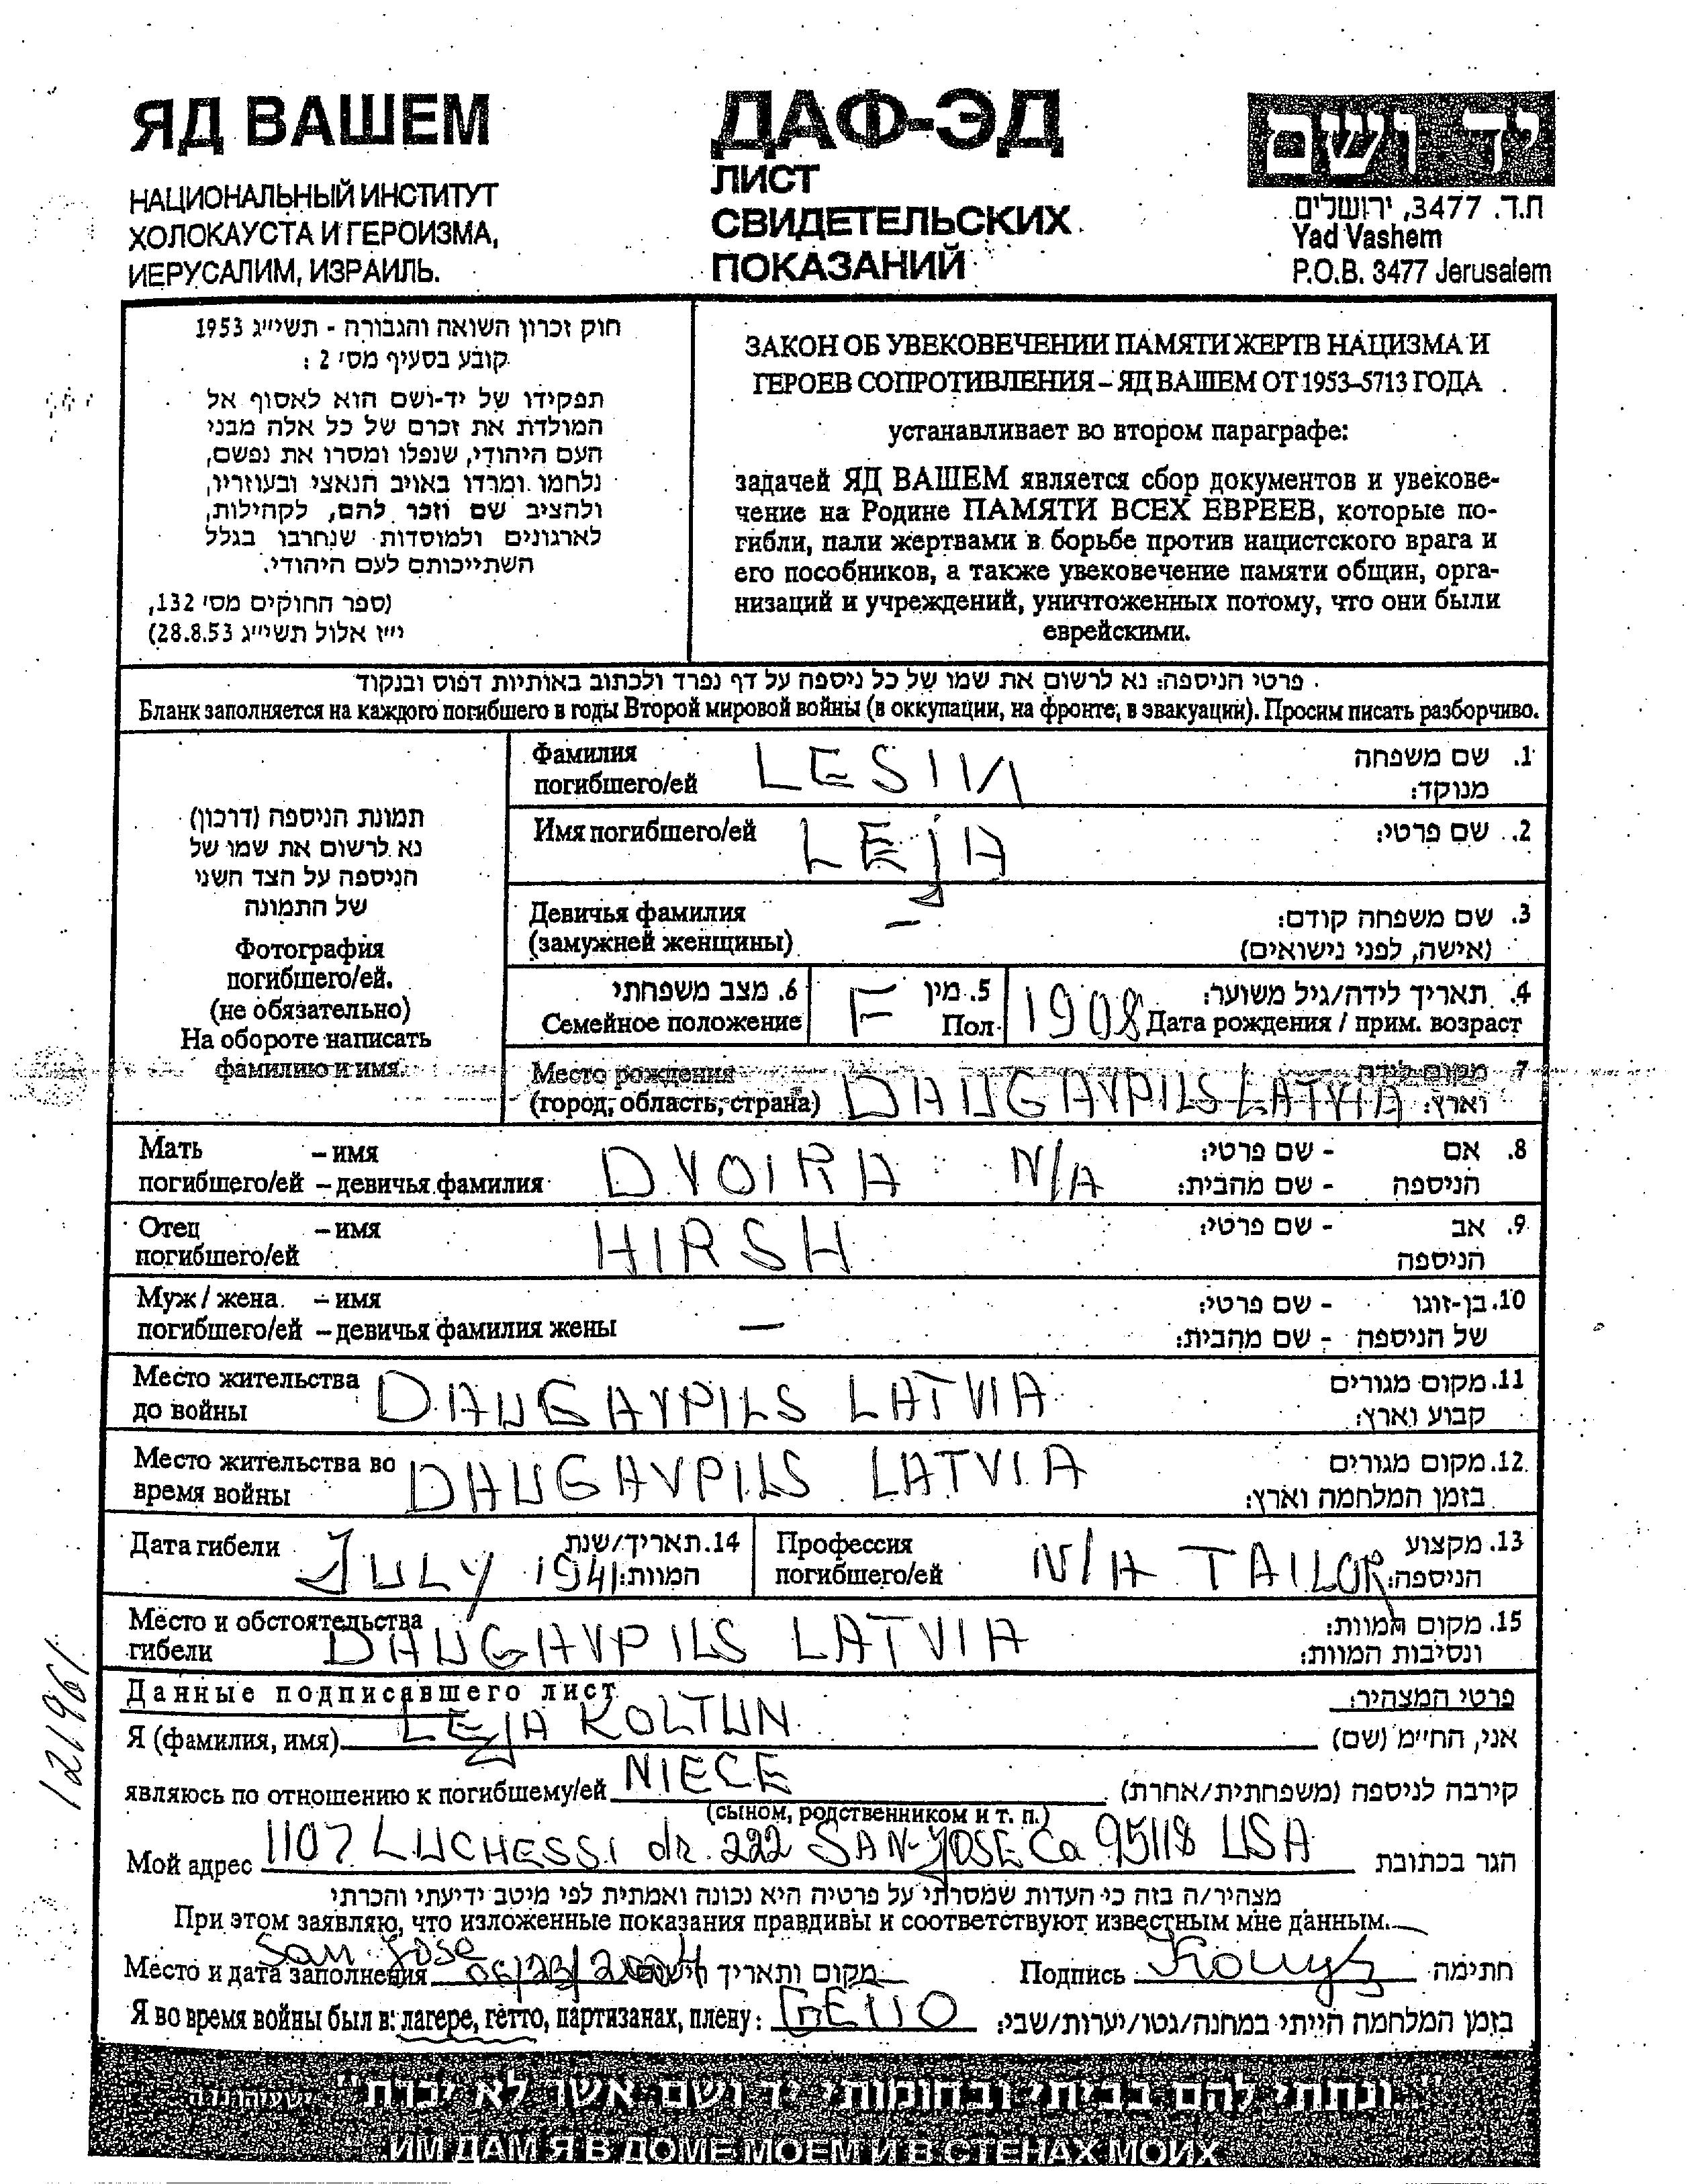 ЯД ВАШЕМ
НАЦИОНАЛЬНЫЙ ИНСТИТУТ
ХОЛОКАУСТА И ГЕРОИЗМА,
ИЕРУСАЛИМ, ИЗРАИЛЬ.
ДАФ-ЭД
ЛИСТ
СВИДЕТЕЛЬСКИХ
ПОКАЗАНИЙ
יד ושם
ת.ד. 3477, ירושלים
Yad Vashem
P.O.B. 3477 Jerusalem
חוק זכרון השואה והגבורה - תשי״ג 1953
קובע בסעיף מס׳ 2 :
תפקידו של יד-ושם הוא לאסוף אל
המולדת את זכרם של כל אלה מבני
העם היהודי, שנפלו ומסרו את נפשם,
נלחמו ומרדו באויב הנאצי ובעוזריו,
ולהציב שם וזכר להם, לקהילות,
לארגונים ולמוסדות שנחרבו בגלל
השתייכותם לעם היהודי.
(ספר החוקים מס׳ 132,
י״ז אלול תשי״ג 28.8.53)
ЗАКОН ОБ УВЕКОВЕЧЕНИИ ПАМЯТИ ЖЕРТВ НАЦИЗМА И
ГЕРОЕВ СОПРОТИВЛЕНИЯ – ЯД ВАШЕМ ОТ 1953–5713 ГОДА
устанавливает во втором параграфе:
задачей ЯД ВАШЕМ является сбор документов и увекове-
чение на Родине ПАМЯТИ ВСЕХ ЕВРЕЕВ, которые по-
гибли, пали жертвами в борьбе против нацистского врага и
его пособников, а также увековечение памяти общин, орга-
низаций и учреждений, уничтоженных потому, что они были
еврейскими.
פרטי הניספה: נא לרשום את שמו של כל ניספה על דף נפרד ולכתוב באותיות דפוס ובנקוד
Бланк заполняется на каждого погибшего в годы Второй мировой войны (в оккупации, на фронте, в эвакуации). Просим писать разборчиво.
תמונת הניספה (דרכון)
נא לרשום את שמו של
הניספה על הצד השני
של התמונה
Фотография
погибшего/ей.
(не обязательно)
На обороте написать
фамилию и имя.
Фамилия LESIN 1. שם משפחה
погибшего/ей מנוקד:
Имя погибшего/ей LEJA 2. שם פרטי:
Девичья фамилия — 3. שם משפחה קודם:
(замужней женщины) (אישה, לפני נישואים)
6. מצב משפחתי F 5. מין 1908 4. תאריך לידה/גיל משוער:
Семейное положение Пол Дата рождения / прим. возраст
Место рождения 7 מקום לידה
(город, область, страна) DAUGAVPILS LATVIA וארץ:
Мать – имя DVOIRA N/A 8. אם - שם פרטי:
погибшего/ей – девичья фамилия הניספה - שם מהבית:
Отец – имя HIRSH 9. אב - שם פרטי:
погибшего/ей הניספה
Муж / жена – имя 10. בן-זוגו - שם פרטי:
погибшего/ей – девичья фамилия жены — של הניספה - שם מהבית:
Место жительства DAUGAVPILS LATVIA 11. מקום מגורים
до войны קבוע וארץ:
Место жительства во DAUGAVPILS LATVIA 12. מקום מגורים
время войны בזמן המלחמה וארץ:
Дата гибели JULY 1941 14. תאריך/שנת המוות: Профессия N/A TAILOR 13. מקצוע
погибшего/ей הניספה:
Место и обстоятельства DAUGAVPILS LATVIA 15. מקום המוות:
гибели ונסיבות המוות:
Данные подписавшего лист פרטי המצהיר:
Я (фамилия, имя) LEJA KOLTUN אני, החי״מ (שם)
являюсь по отношению к погибшему/ей NIECE קירבה לניספה (משפחתית/אחרת)
(сыном, родственником и т. п.)
Мой адрес 1107 LUCHESSI dr. 222 SAN-JOSE Ca 95118 USA הגר בכתובת
מצהיר/ה בזה כי העדות שמסרתי על פרטיה היא נכונה ואמתית לפי מיטב ידיעתי והכרתי
При этом заявляю, что изложенные показания правдивы и соответствуют известным мне данным.
Место и дата заполнения San Jose 06/23/2004 מקום ותאריך Подпись חתימה
Я во время войны был в: лагере, гетто, партизанах, плену: GETTO בזמן המלחמה הייתי במחנה/גטו/יערות/שבי:
121961
״...ונתתי להם בביתי ובחומותי יד ושם אשר לא יכרת״
ИМ ДАМ Я В ДОМЕ МОЕМ И В СТЕНАХ МОИХ